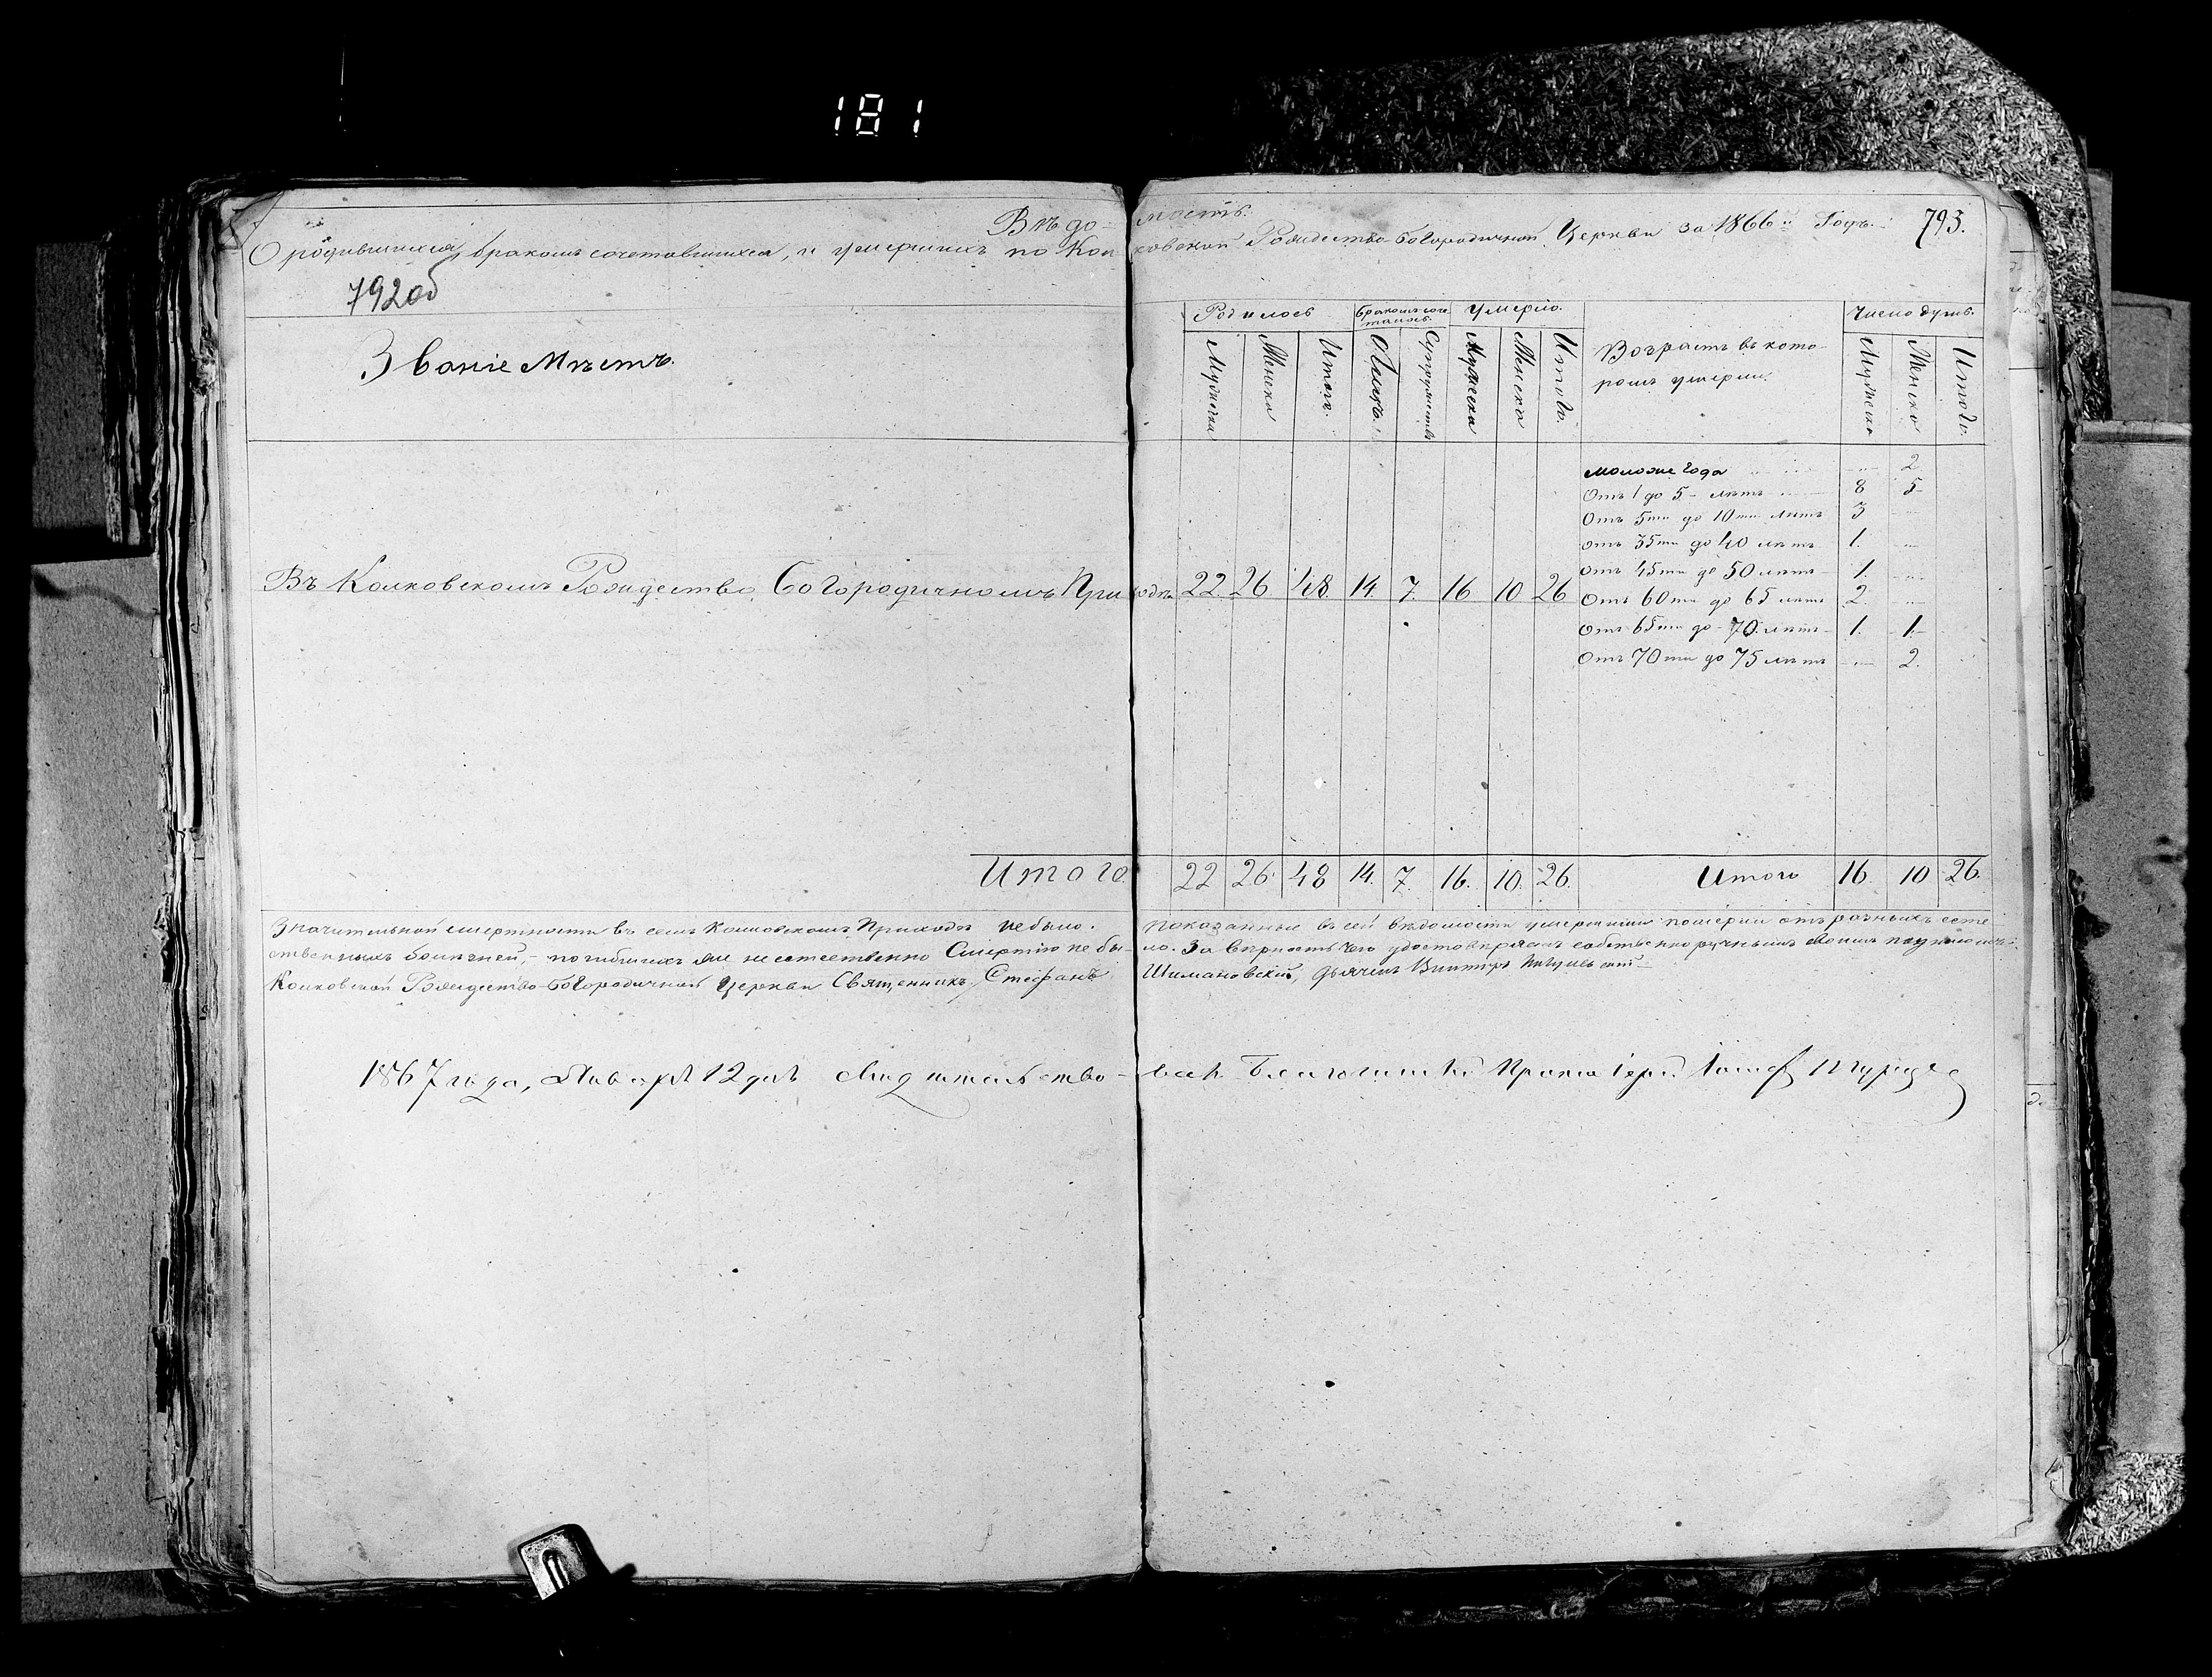 181
Вѣдомость.
О родившихся, бракомъ сочетавшихся, и умершихъ по Колковской Рождество-Богородичной Церкви за 1866й Годъ.
793.
792об
Званіе Мѣстъ.
Родилось
Бракомъ сочеталось.
Умерло.
Возрастъ въ которомъ умерли.
Число душъ.
Мужеска
Женска
Итого.
Лицъ.
Супружествъ
Мужеска
Женска
Итого.
Мужеска
Женска
Итого.
Въ Колковскомъ Рождество Богородичномъ Приходѣ 22. 26 48. 14. 7. 16 10 26
моложе года 2
Отъ 1 до 5 лѣтъ 8 5
Отъ 5ти до 10ти лѣтъ 3
отъ 35ти до 40 лѣтъ 1.
отъ 45ти до 50 лѣтъ 1.
Отъ 60ти до 65 лѣтъ 2.
Отъ 65ти до 70 лѣтъ 1. 1.
Отъ 70ти до 75 лѣтъ 2.
Итого. 22 26 48 14. 7. 16. 10. 26. Итого 16 10 26.
Значительной смертности въ семъ Колковскомъ Приходѣ небыло. Показанные въ сей вѣдомости умершими померли отъ разныхъ есте
ственныхъ болѣзней, - погибшихъ же неестественно Смертію не бы-ло. За вѣрность чего удостовѣряемъ собственноручнымъ своимъ
Колковской Рождество-Богородичной Церкви Священникъ Стефанъ Шимановскій, дьячекъ Викторъ
1867 года, Января 12 дня Свидѣтельство-валъ Благочинный Протоіерей